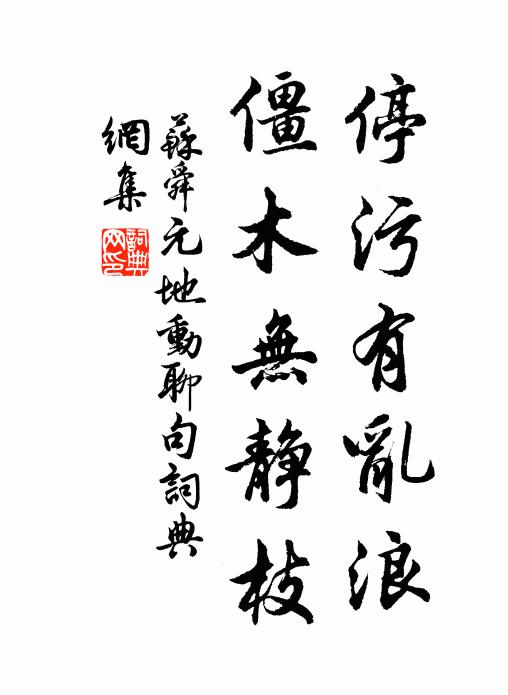 停污有亂浪
僵木無静枝
蘇舜元地動聊句詞典
網集
詞典
网印